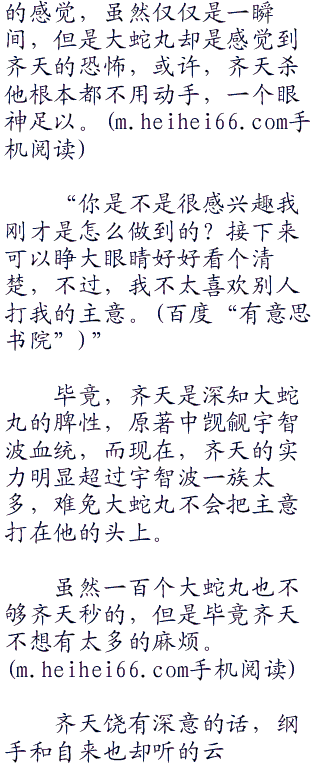 的感觉，虽然仅仅是一瞬
间，但是大蛇丸却是感觉到
齐天的恐怖，或许，齐天杀
他根本都不用动手，一个眼
神足以。(m.heihei66.com手
机阅读)
“你是不是很感兴趣我
刚才是怎么做到的？接下来
可以睁大眼睛好好看个清
楚，不过，我不太喜欢别人
打我的主意。(百度“有意思
书院”)”
毕竟，齐天是深知大蛇
丸的脾性，原著中觊觎宇智
波血统，而现在，齐天的实
力明显超过宇智波一族太
多，难免大蛇丸不会把主意
打在他的头上。
虽然一百个大蛇丸也不
够齐天秒的，但是毕竟齐天
不想有太多的麻烦。
(m.heihei66.com手机阅读)
齐天饶有深意的话，纲
手和自来也却听的云